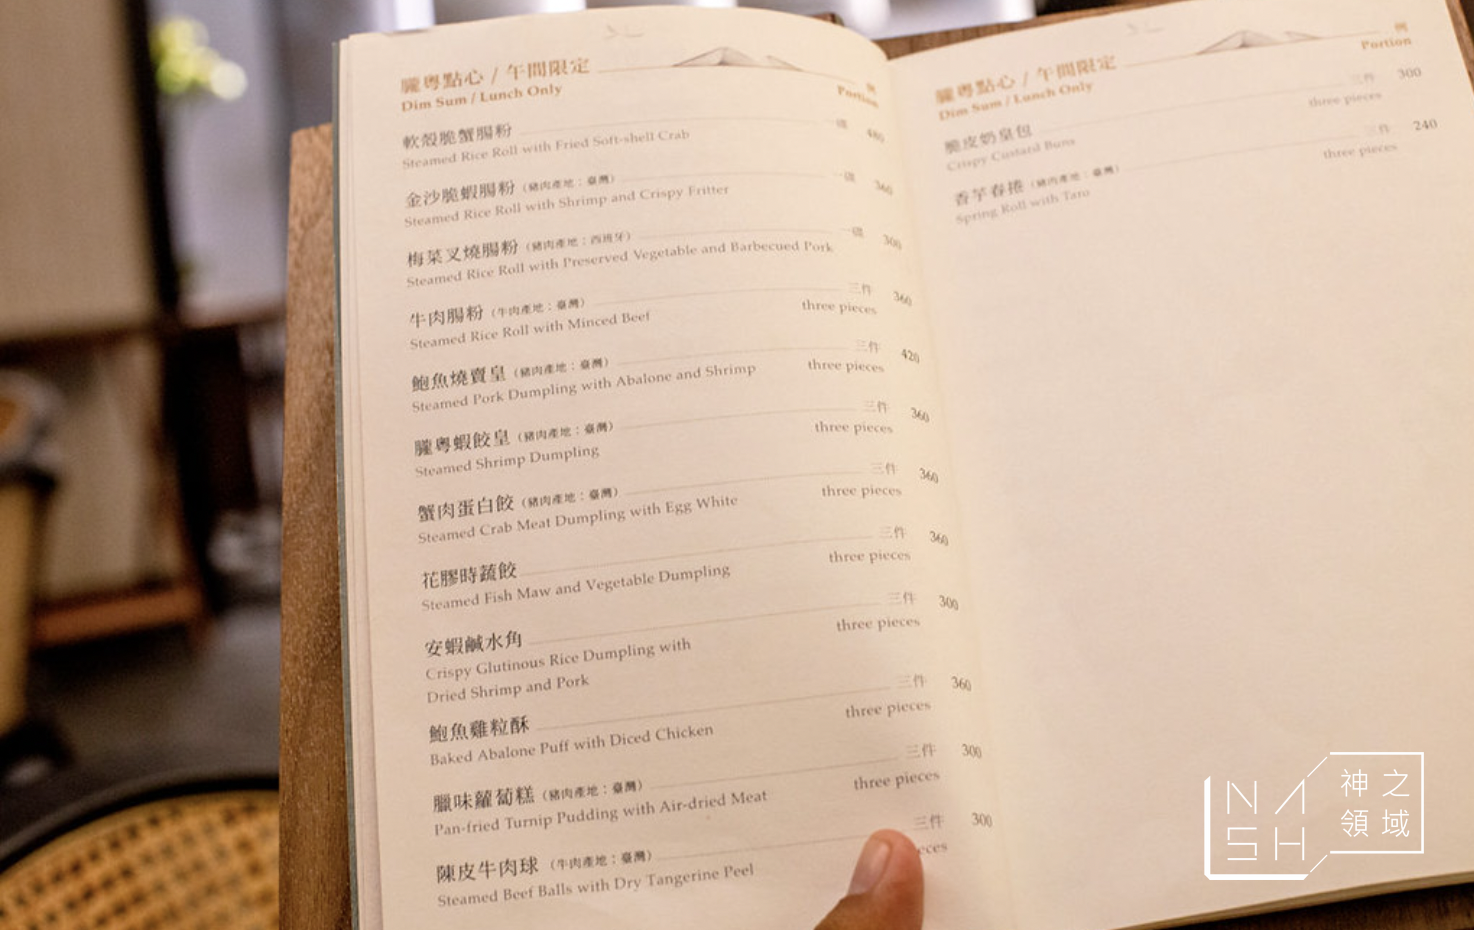 朧粵點心 / 午間限定
Dim Sum / Lunch Only
例
Portion
軟殼脆蟹腸粉 一碟 480
Steamed Rice Roll with Fried Soft-shell Crab
金沙脆蝦腸粉（豬肉產地：臺灣） 一碟 360
Steamed Rice Roll with Shrimp and Crispy Fritter
梅菜叉燒腸粉（豬肉產地：西班牙） 一碟 300
Steamed Rice Roll with Preserved Vegetable and Barbecued Pork
牛肉腸粉（牛肉產地：臺灣） 三件 360
Steamed Rice Roll with Minced Beef three pieces
鮑魚燒賣皇（豬肉產地：臺灣） 三件 420
Steamed Pork Dumpling with Abalone and Shrimp three pieces
朧粵蝦餃皇（豬肉產地：臺灣） 三件 360
Steamed Shrimp Dumpling three pieces
蟹肉蛋白餃（豬肉產地：臺灣） 三件 360
Steamed Crab Meat Dumpling with Egg White three pieces
花膠時蔬餃 三件 360
Steamed Fish Maw and Vegetable Dumpling three pieces
安蝦鹹水角 三件 300
Crispy Glutinous Rice Dumpling with three pieces
Dried Shrimp and Pork
鮑魚雞粒酥 三件 360
Baked Abalone Puff with Diced Chicken three pieces
臘味蘿蔔糕（豬肉產地：臺灣） 三件 300
Pan-fried Turnip Pudding with Air-dried Meat three pieces
陳皮牛肉球（牛肉產地：臺灣） 三件 300
Steamed Beef Balls with Dry Tangerine Peel eces
朧粵點心 / 午間限定
Dim Sum / Lunch Only
例
Portion
脆皮奶皇包 三件 300
Crispy Custard Buns three pieces
香芋春捲（豬肉產地：臺灣） 三件 240
Spring Roll with Taro three pieces
NASH
神之
領域